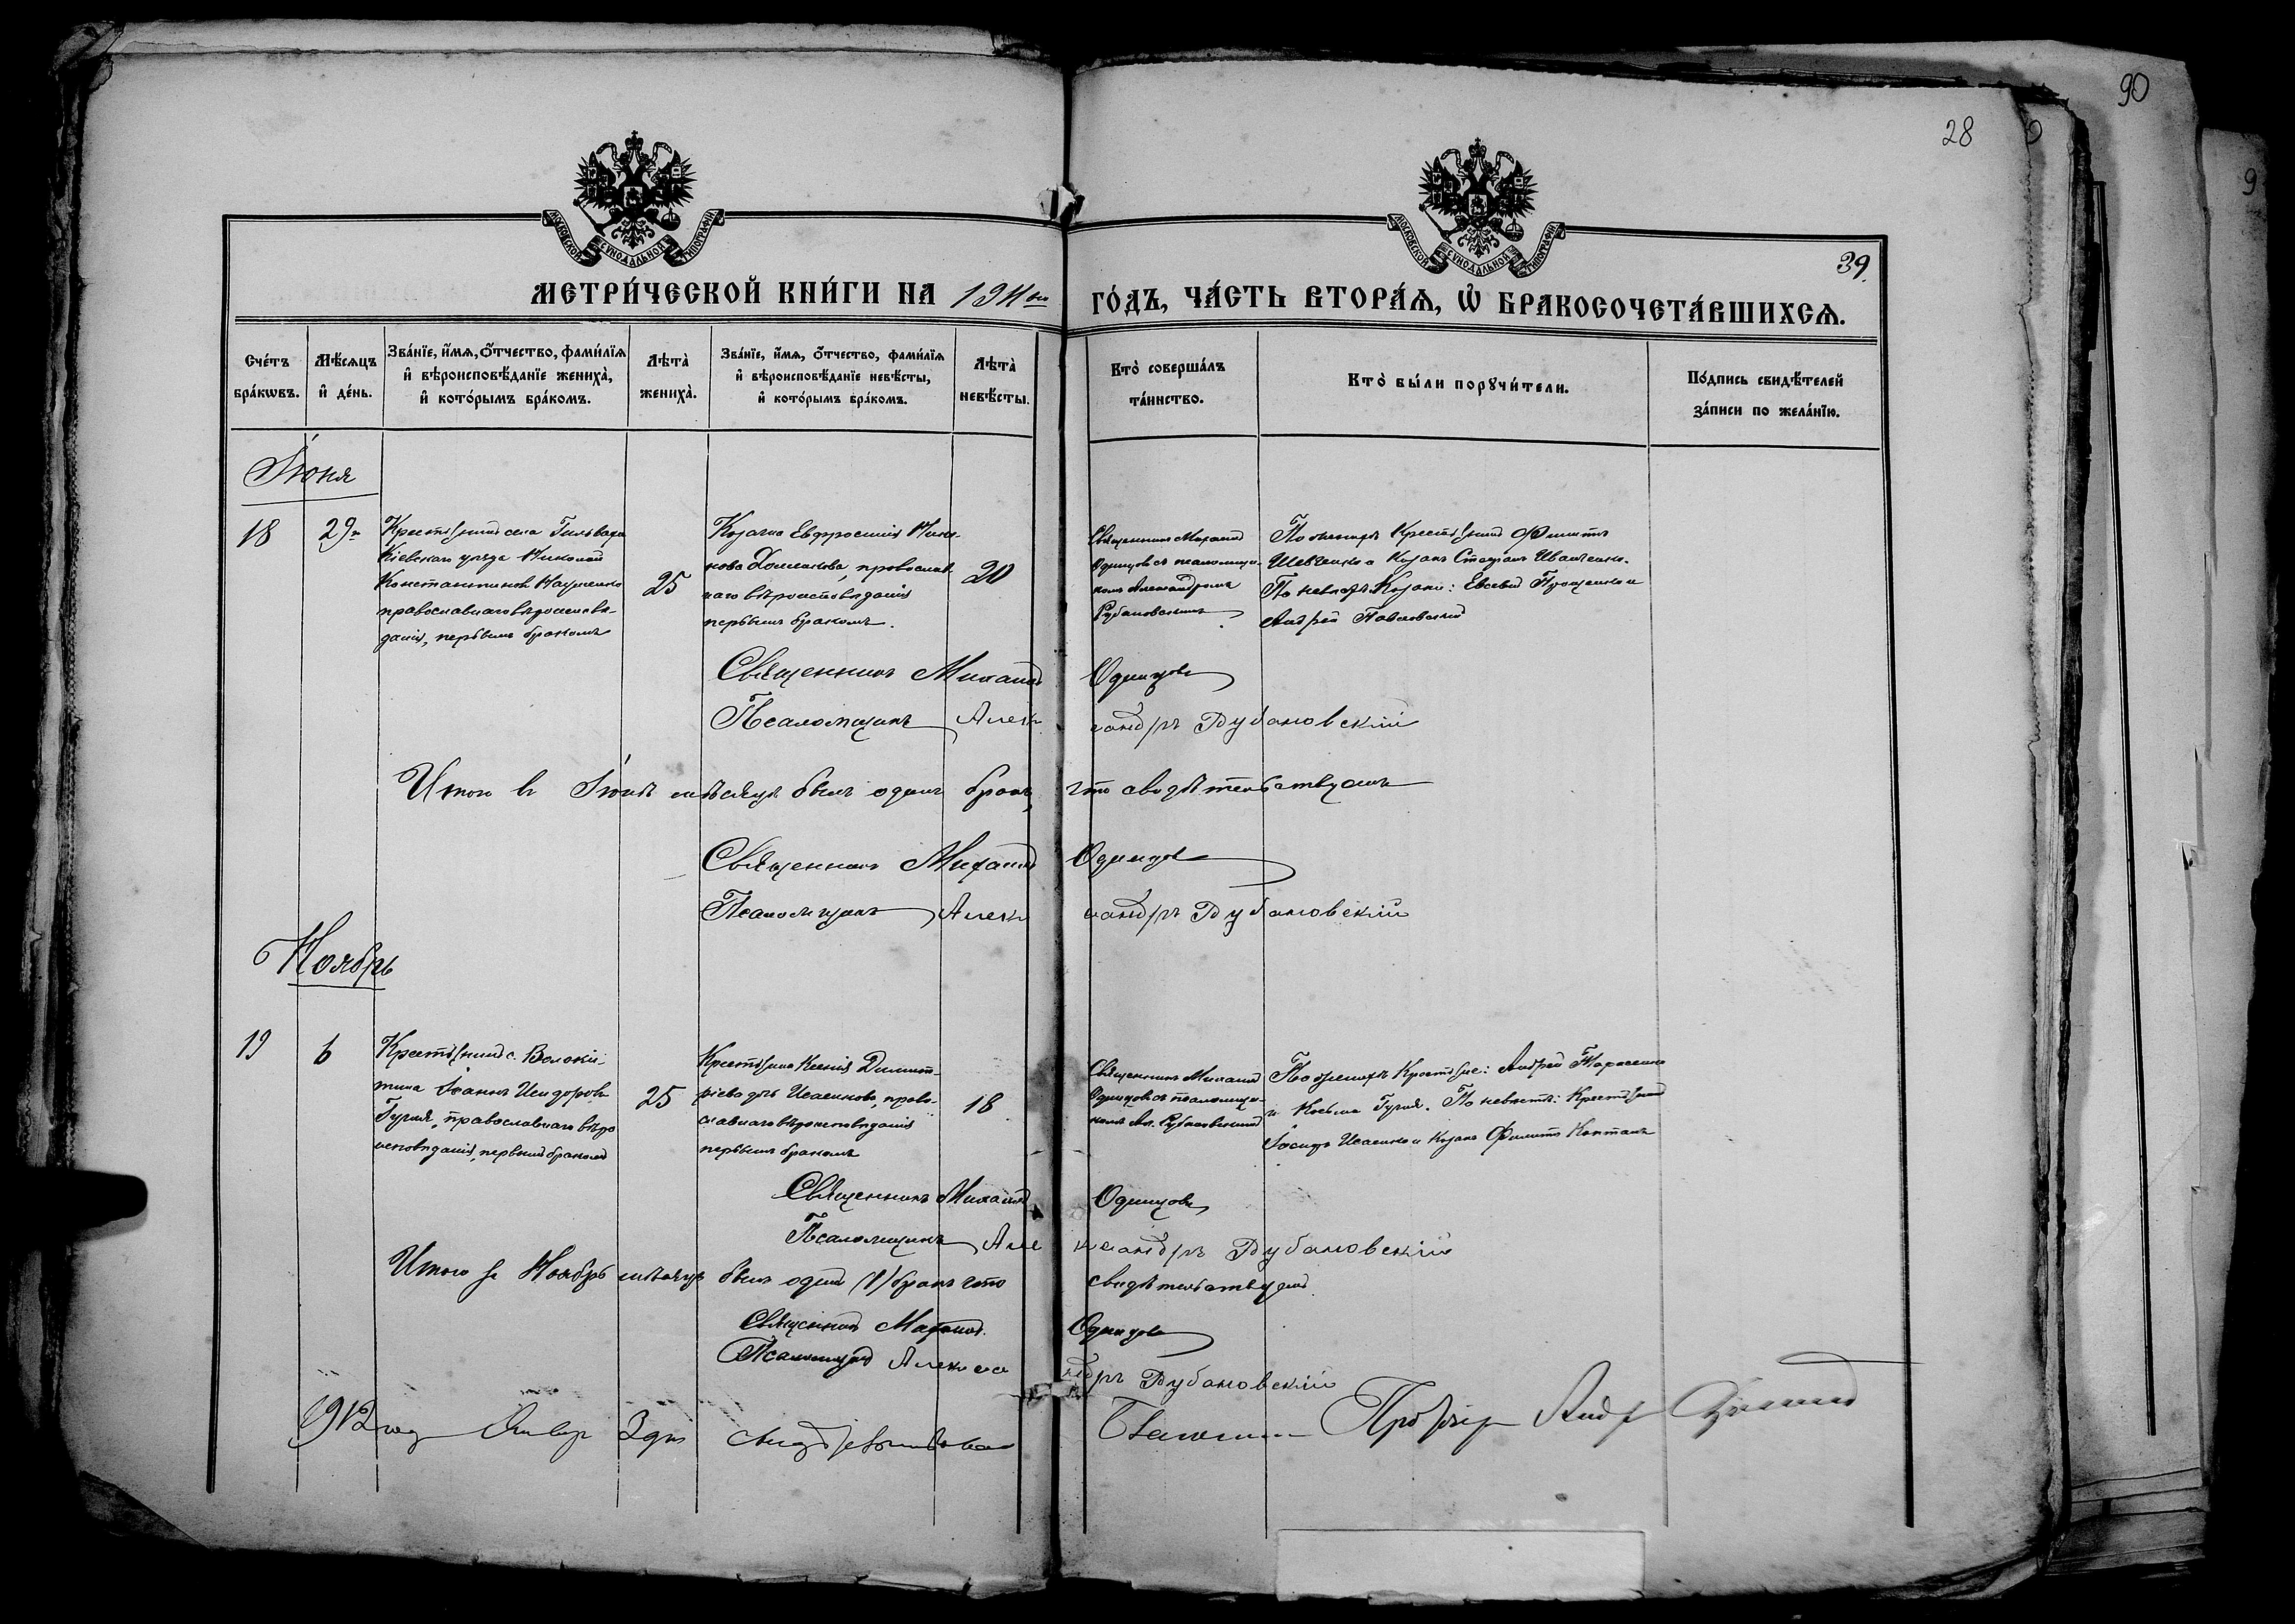 90
28
39.
МОСКОВСКОЙ СУНОДАЛЬНОЙ ТИПОГРАФІИ
МОСКОВСКОЙ СУНОДАЛЬНОЙ ТИПОГРАФІИ
МЕТРИ́ЧЕСКОЙ КНИ́ГИ НА 1911 ГО́ДЪ, ЧА́СТЬ ВТОРА́Ѧ, Ѡ҆ БРАКОСОЧЕТА́ВШИХСѦ.
Сче́тъ бра́кωвъ.
Мѣ́сѧцъ и҆ де́нь.
Зва́нїе, и҆́мѧ, ѻ҆́тчество, фами́лїѧ
и҆ вѣроисповѣ́данїе жениха̀,
и҆ кото́рымъ бра́комъ.
Лѣта̀ жениха̀.
Зва́нїе, и҆́мѧ, ѻ҆́тчество, фами́лїѧ
и҆ вѣроисповѣ́данїе невѣ́сты,
и҆ кото́рымъ бра́комъ.
Лѣта̀ невѣ́сты.
Кто̀ соверша́лъ
та́инство.
Кто̀ бы́ли порꙋчи́тели.
По́дпись свидѣ́телей
за́писи по жела́нїю.
Іюня
18
29
Крестьянинъ села
Кіевскаго уѣзда Николай
Константиновъ Науменко
православнаго вѣроисповѣ-
данія, первымъ бракомъ
25
Козачка Евфросинія
православ-
наго вѣроисповѣданія
первымъ бракомъ.
20
Священникъ Михаилъ
Одинцовъ съ псаломщи-
комъ Александромъ
Рубановскимъ
По женихѣ Крестьянинъ Филиппъ
Шевченко и козакъ Стефанъ Иванченко.
По невѣстѣ Козаки: Евсевій Проценко и
Андрей Павловскій
Священникъ Михаилъ Одинцовъ
Псаломщикъ Александръ Рубановскій
Итого въ Іюнѣ мѣсяцѣ былъ одинъ бракъ, что свидѣтельствуемъ
Священникъ Михаилъ Одинцовъ
Псаломщикъ Александръ Рубановскій
Ноябрь
19
6
Крестьянинъ с. Волоки-
тина Іоаннъ Исидоровъ
Гучия, православнаго вѣро
исповѣданія, первымъ бракомъ
25
Крестьянка Ксенія Димит-
ріева дочь Исаенкова, право-
славнаго вѣроисповѣданія
первымъ бракомъ
18
Священникъ Михаилъ
Одинцовъ съ псаломщи-
комъ Ал. Рубановскимъ
По женихѣ Крестьяне: Андрей Тарасенко
и Косьма Гучия. По невѣстѣ: Крестьянинъ
Іосифъ Исаенко и козакъ Филиппъ
Священникъ Михаилъ Одинцовъ
Псаломщикъ Александръ Рубановскій
Итого за Ноябрь мѣсяцъ былъ одинъ (1) бракъ что свидѣтельствуемъ
Священникъ Михаилъ Одинцовъ
Псаломщикъ Александръ Рубановскій
1912 год Январ 3 дня